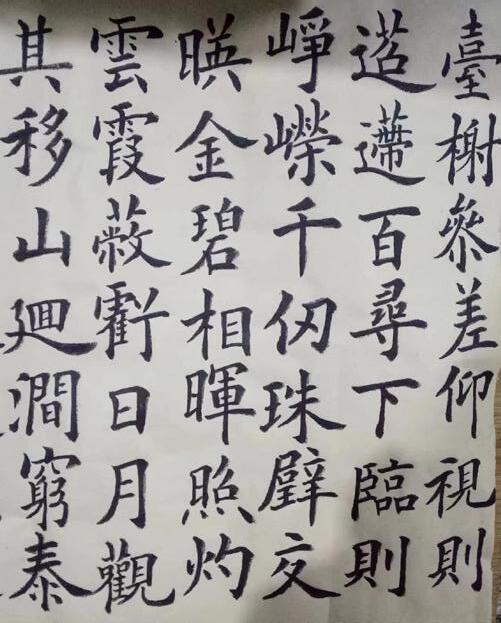 臺榭參差仰視則
迢遰百尋下臨則
崢嶸千仞珠璧交
暎金碧相暉照灼
雲霞蔽虧日月觀
其移山廻澗窮泰